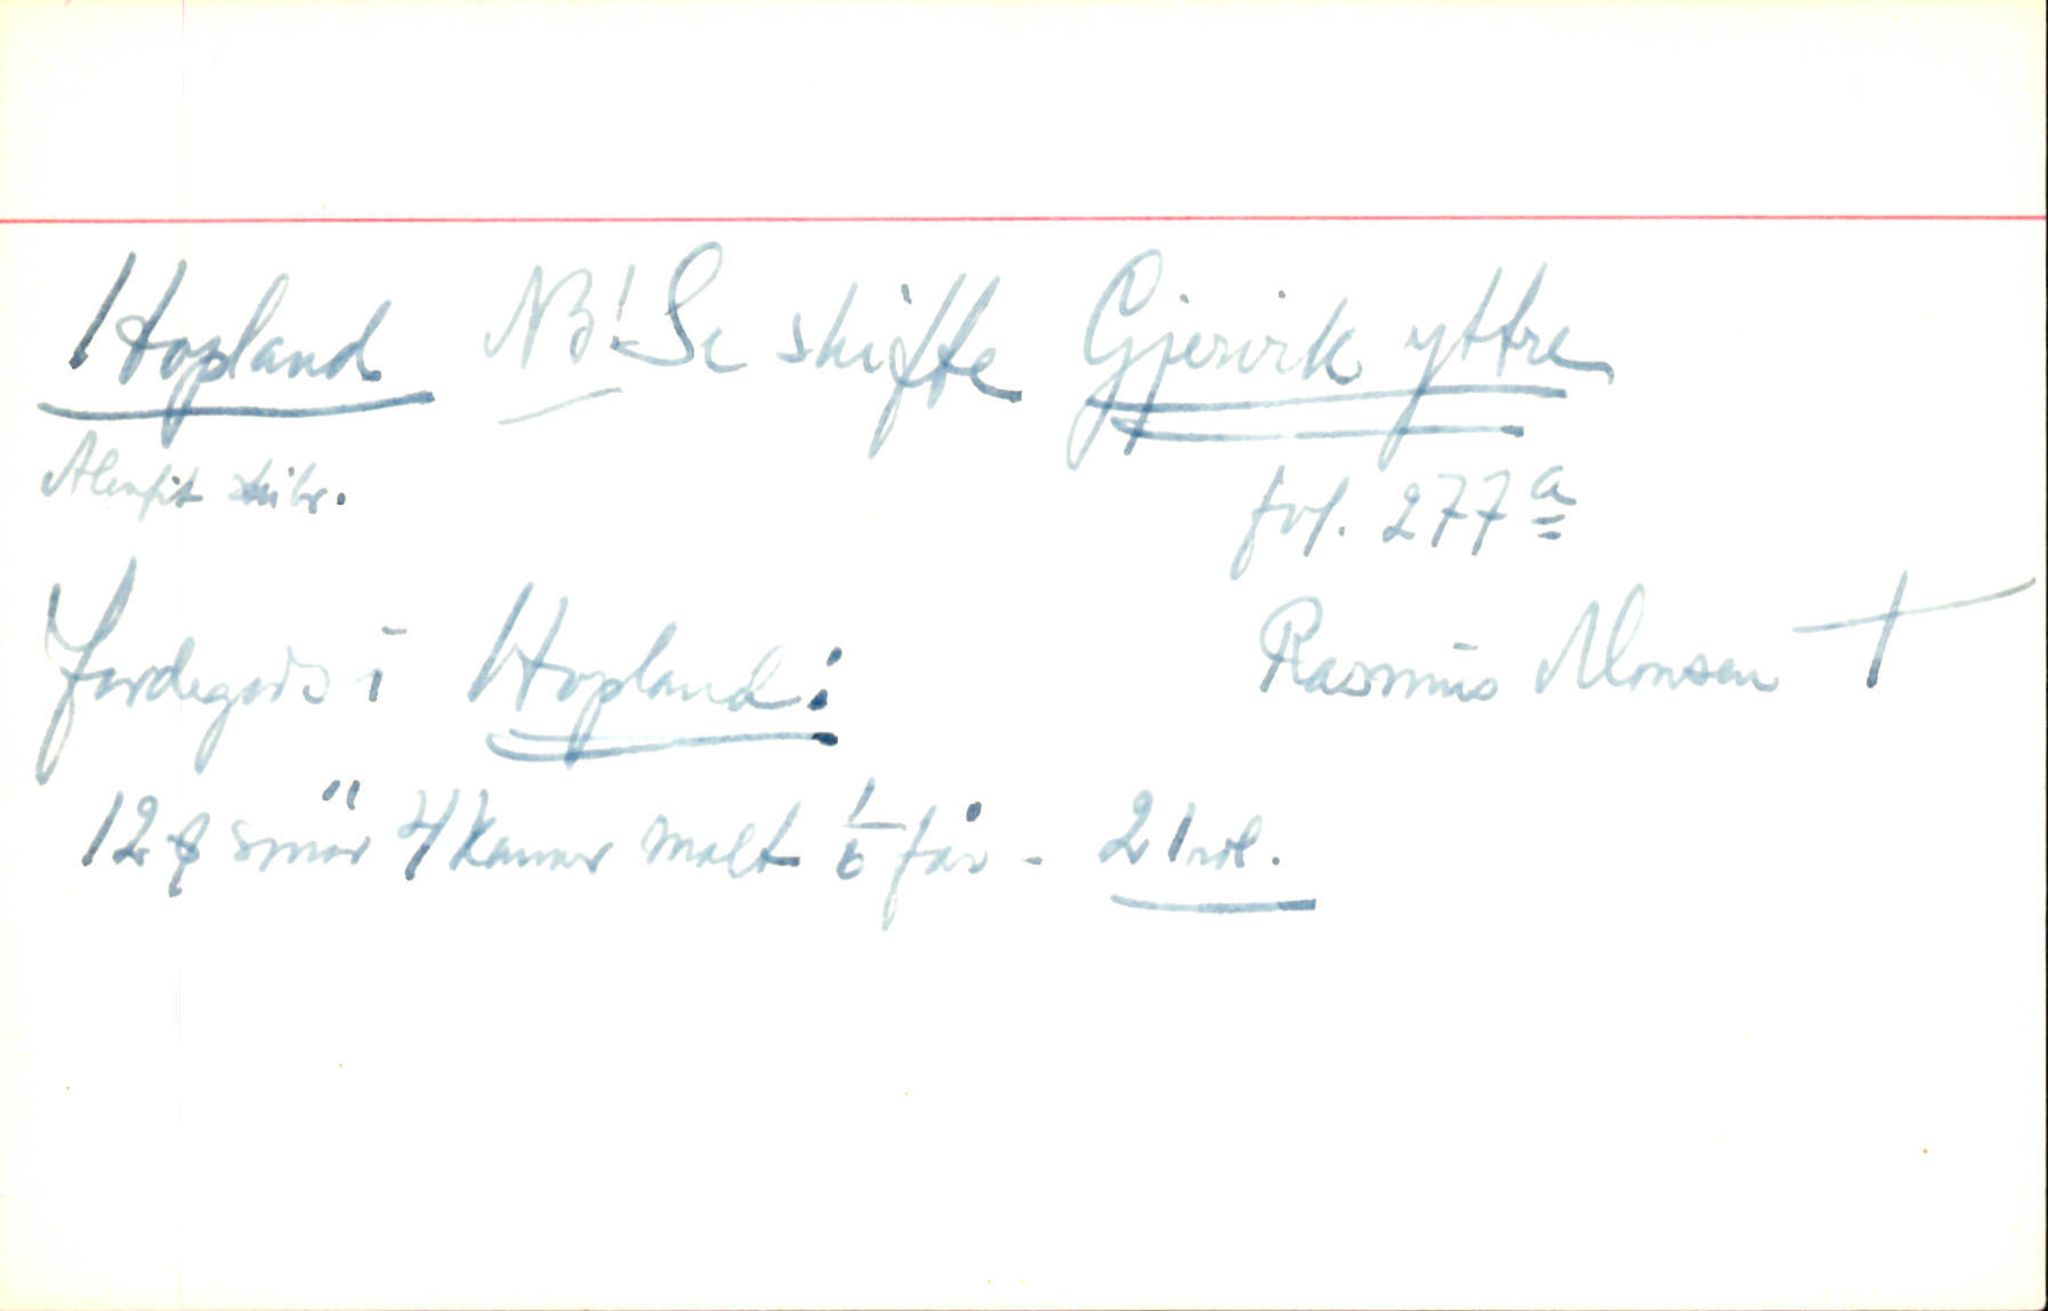 Hopland NB! Se skifte Gjervik yttre
Alenfit skibr.
fol. 277a
Jordegods i Hopland: Rasmus Monsen †
12 smör 4 Kanner malt 1/6 får - 21 rdl.